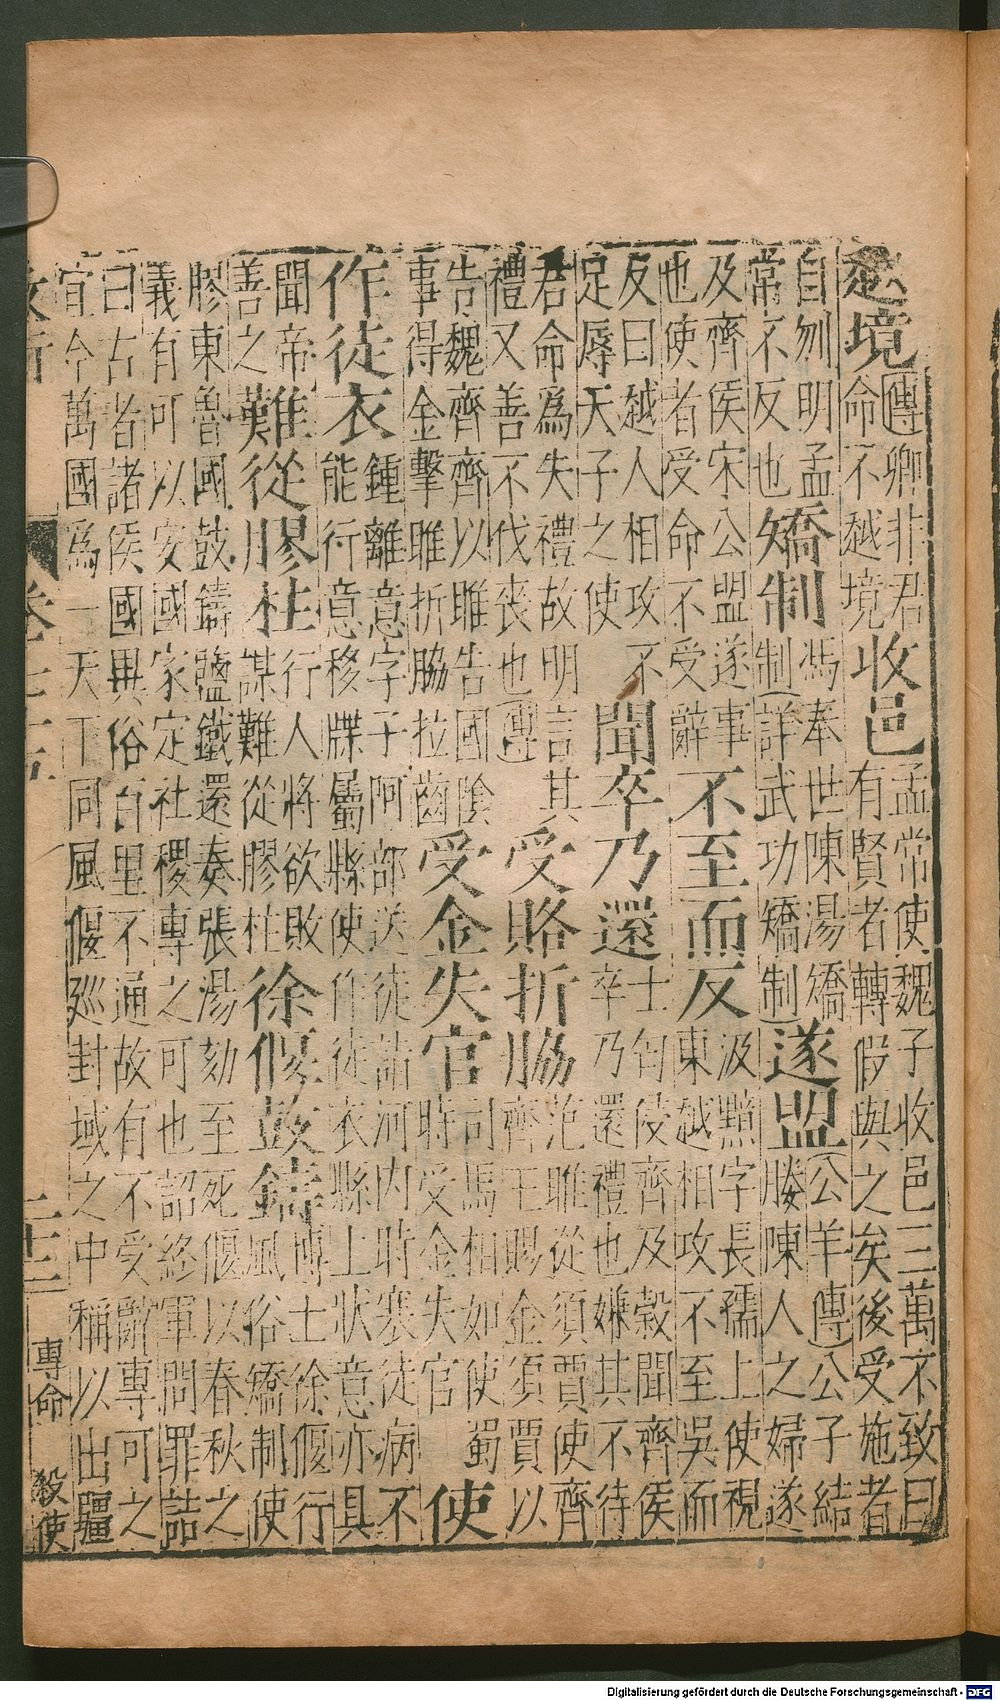 越境傳卿非君
命不越境收邑孟常使魏子收邑三萬不致曰
有賢者轉假與之矣後受施者
自刎明孟
常不反也矯制馮奉世陳湯矯
制(詳武功矯制遂盟(公羊傳)公子結
媵陳人之婦遂
及齊侯宋公盟遂事
也使者受命不受辭不至而反汲黯字長孺上使視
東越相攻不至吳而
反曰越人相攻不
足辱天子之使聞卒乃還士匄侵齊及穀聞齊侯
卒乃還禮也嫌其不待
君命爲失禮故明言其
禮又善不伐喪也傳受賂折脇范雎從須賈使齊
齊王賜金須賈以
告魏齊齊以雎告國陰
事得金擊雎折脇拉齒受金失官司馬相如使蜀
時受金失官使
作徒衣鍾離意字子阿部送徒詣河內時寒徒病不
能行意移牒屬縣使作徒衣縣上狀意亦具
聞帝
善之難從膠柱行人將欲敗
謀難從膠柱徐偃鼓鑄博士徐偃行
風俗矯制使
膠東魯國鼓鑄鹽鐵還奏張湯劾至死偃以春秋之
義有可以安國家定社稷專之可也詔終軍問罪詰
曰古者諸侯國異俗百里不通故有不受辭專可之
宜今萬國爲一天下同風偃巡封域之中稱以出疆
專命 殺使
Digitalisierung gefördert durch die Deutsche Forschungsgemeinschaft - DFG